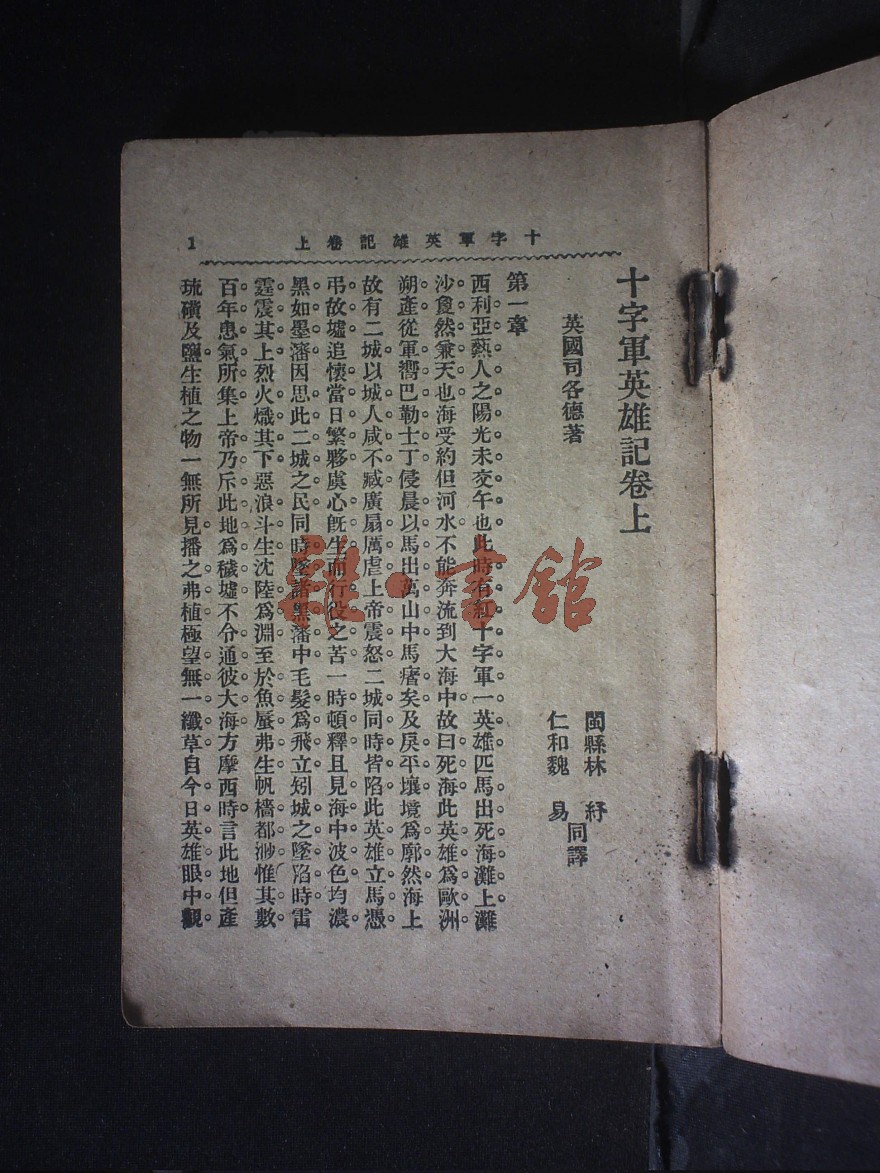 十字軍英雄記卷上
1
十字軍英雄記卷上
英國司各德著
閩縣林 紓
仁和魏 易
同譯
第一章
西利亞爇人之陽光未交午也此時有紅十字軍一英雄匹馬出死海灘上灘
沙敻然兼天也海受約但河水不能奔流到大海中故曰死海此英雄為歐洲
朔產從軍嚮巴勒士丁侵晨以馬出萬山中馬瘏矣及戾平壤境為廓然海上
故有二城以城人咸不臧廣扇厲虐上帝震怒二城同時皆陷此英雄立馬憑
弔故墟追懷當日繁夥虞心旣生而行役之苦一時頓釋且見海中波色均濃
黑如墨瀋因思此二城之民同時墜諸黑瀋中毛髮為飛立矧城之墜陷時雷
霆震其上烈火熾其下惡浪斗生沈陸為淵至於魚蜃弗生帆檣都渺惟其數
百年患氣所集上帝乃斥此地為穢墟不令通彼大海方摩西時言此地但產
琉磺及鹽生植之物一無所見播之弗植極望無一纖草自今日英雄眼中觀
雜·書館